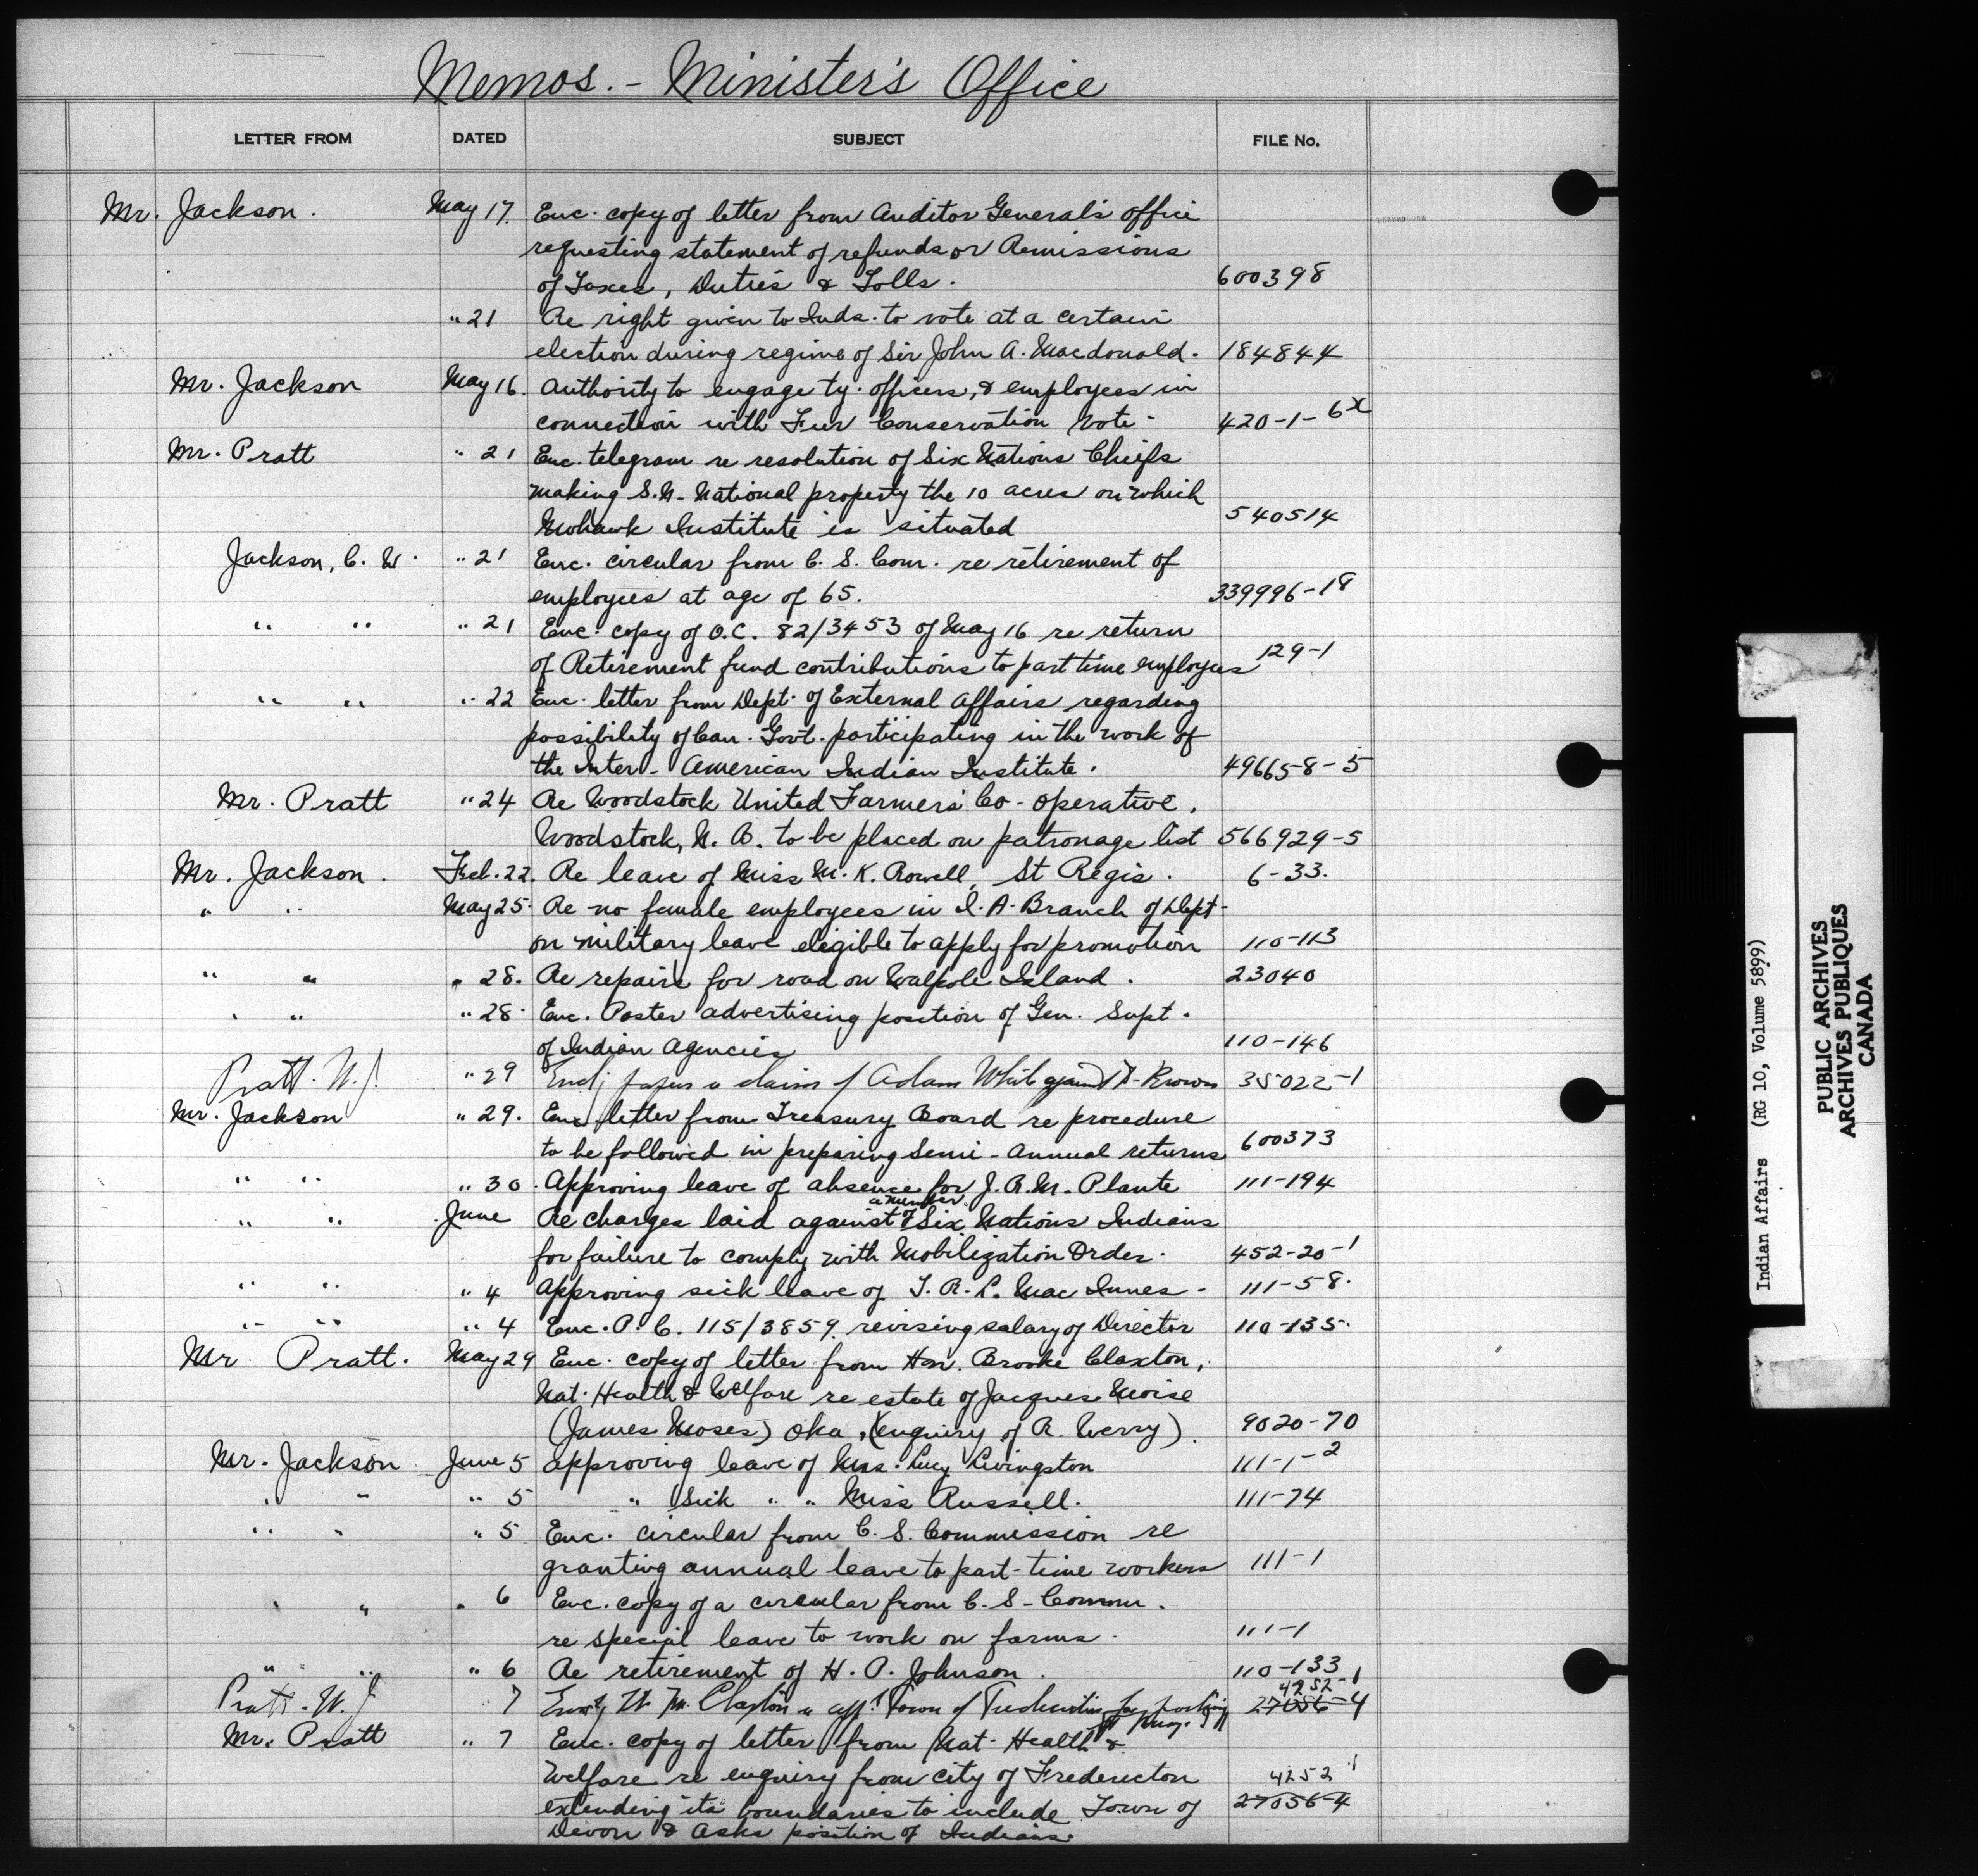 Memos. - Minister's Office
LETTER FROM DATED SUBJECT FILE No.
Mr. Jackson. May 17. Enc. copy of letter from Auditor General's Office
requesting statement of refunds or Remissions
of Taxes, Duties & Tolls. 600398
" 21 Re right given to Inds. to vote at a certain
election during regime of Sir John A. Macdonald. 184844
Mr. Jackson May 16. Authority to engage ty. officers, & employees in
connection with Fur Conservation Vote. 420-1-6x
Mr. Pratt " 21 Enc. telegram re resolution of Six Nations Chiefs
making S.N. National property the 10 acres on which
Mohawk Institute is situated 540514
Jackson, C. W. " 21 Enc. circular from C. S. Com. re retirement of
employees at age of 65. 339996-18
" " " 21 Enc. copy of O.C. 82/3453 of May 16 re return
of Retirement fund contributions to part time employees 129-1
" " " 22 Enc. letter from Dept. of External Affairs regarding
possibility of Can. Govt. participating in the work of
the Inter-American Indian Institute. 496658-5
Mr. Pratt " 24 Re Woodstock United Farmers' Co-operative,
Woodstock, N. B. to be placed on patronage list 566929-5
Mr. Jackson. Feb. 22. Re leave of Miss M. K. Rowell, St Regis. 6-33.
" " May 25. Re no female employees in I. A. Branch of Dept.
on military leave eligible to apply for promotion 110-113
" " " 28. Re repairs for road on Walpole Island. 23040
" " " 28. Enc. Poster advertising position of Gen. Supt.
of Indian Agencies 110-146
Pratt. W. J. " 29 papers re claim of Adam White against Brown 35022-1
Mr. Jackson " 29. Enc. letter from Treasury Board re procedure
to be followed in preparing semi-annual returns 600373
" " " 30. Approving leave of absence for J. R. M. Plante 111-194
" " June Re charges laid against a number of Six Nations Indians
for failure to comply with Mobilization Order. 452-20-1
" " " 4 Approving sick leave of T. R. L. MacInnes. 111-58.
" " " 4 Enc. P. C. 115/3859 revising salary of Director 110-135.
Mr Pratt. May 29 Enc. copy of letter from Hon. Brooke Claxton,
Nat. Health & Welfare re estate of Jacques Moise
(James Moses) Oka, (enquiry of R. Werry). 9020-70
Mr. Jackson June 5 Approving leave of Mrs. Lucy Livingston 111-1-2
" " " 5 " Sick " " Miss Russell. 111-74
" " " 5 Enc. circular from C. S. Commission re
granting annual leave to part-time workers 111-1
" " " 6 Enc. copy of a circular from C. S. Comm.
re special leave to work on farms. 111-1
" " " 6 Re retirement of H. A. Johnson. 110-133
Pratt. W. J. " 7 Claxton re Town of 4252-1 27056-4
Mr. Pratt " 7 Enc. copy of letter from Nat. Health &
Welfare re enquiry from City of Fredericton
extending its boundaries to include Town of 4252-1 27056-4
Devon & asks position of Indians.
Indian Affairs (RG 10, Volume 5899)
PUBLIC ARCHIVES
ARCHIVES PUBLIQUES
CANADA